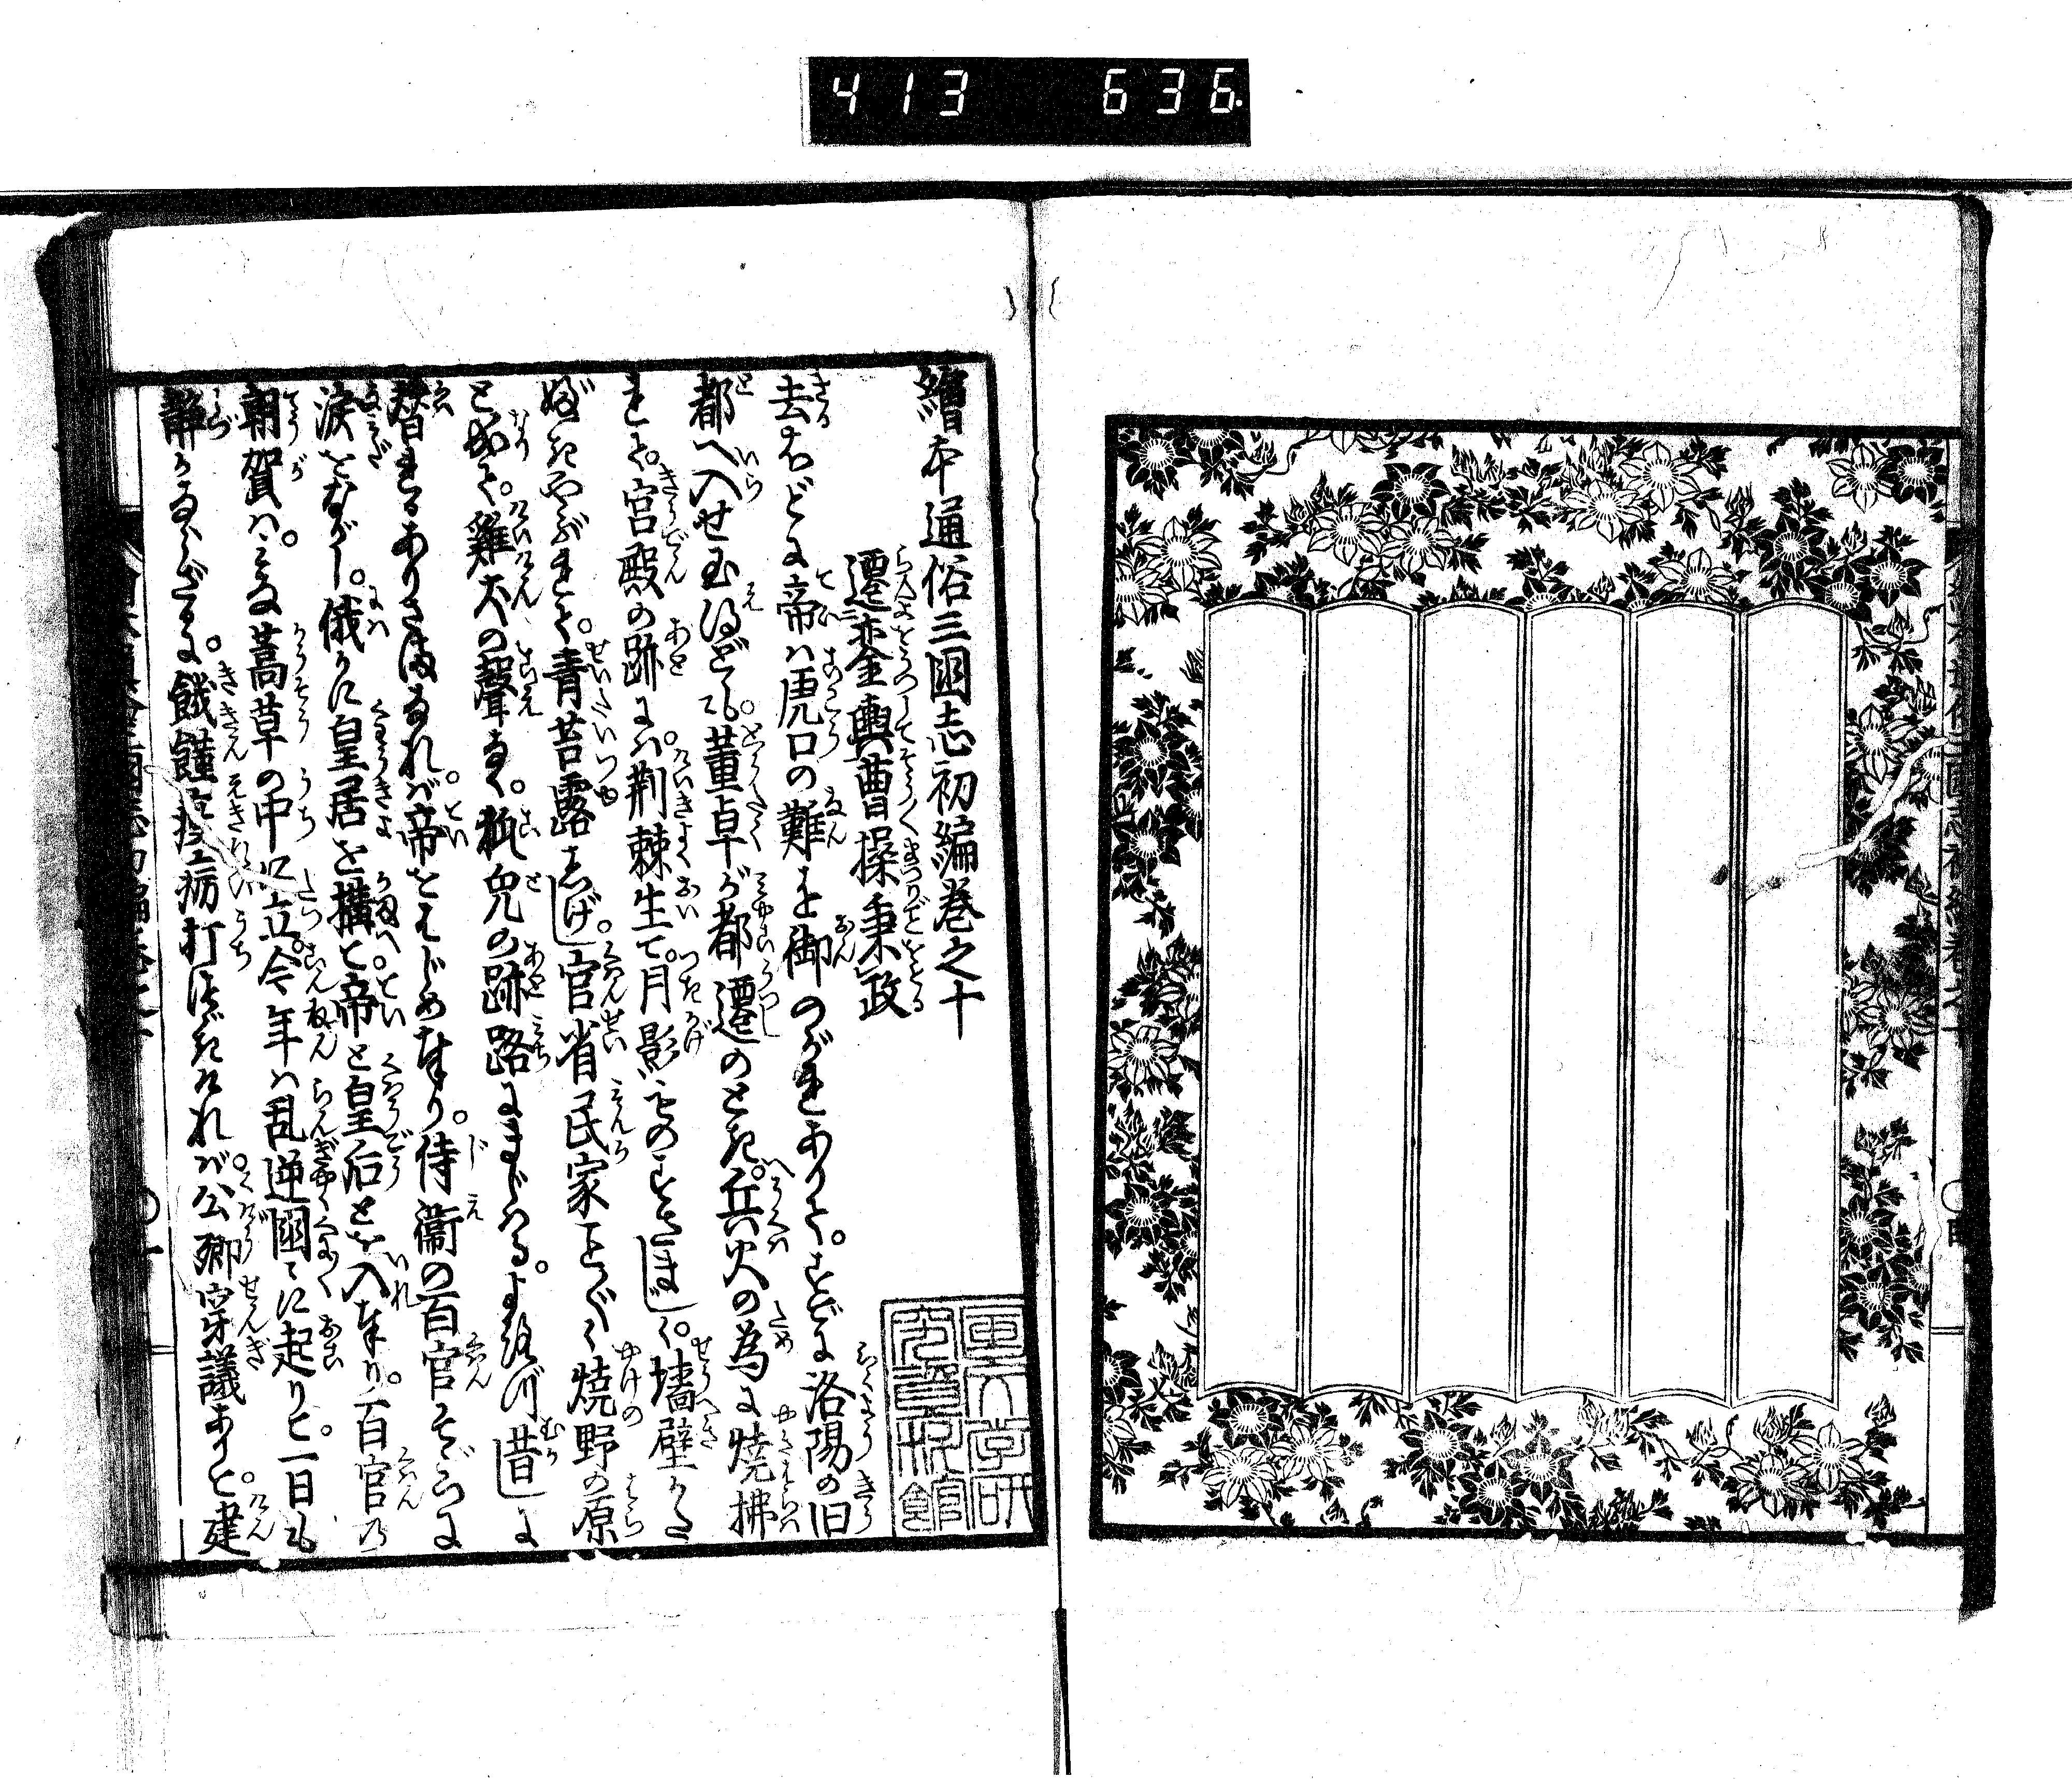 413 636
繪本通俗三國志初編巻之十
遷鑾輿曹操秉政
去ほどに帝は虎口の難を御のがれありて。すでに洛陽の旧
都へ入せ玉へども。董卓が都遷のとき。兵火の為に焼拂
れて。宮殿の跡には。荆棘生て。月影ものすさまじく。墻壁くづ
をれやぶれて。青苔露しげし。官省民家ことごとく焼野の原
となりて。雞犬の聲なく。狐兎の跡路にまじはる。よろづ昔に
替れるありさまなれば。帝をはじめ奉り。侍衞の百官そゞろに
涙をながし。俄かに皇居を構へ。帝と皇后とを入奉り。百官の
朝賀は。みな蒿草の中に立。今年は乱逆國々に起りて。一日も
静かならざるに。餓饉疫癘打つゞきければ。公卿穿議ありて。建